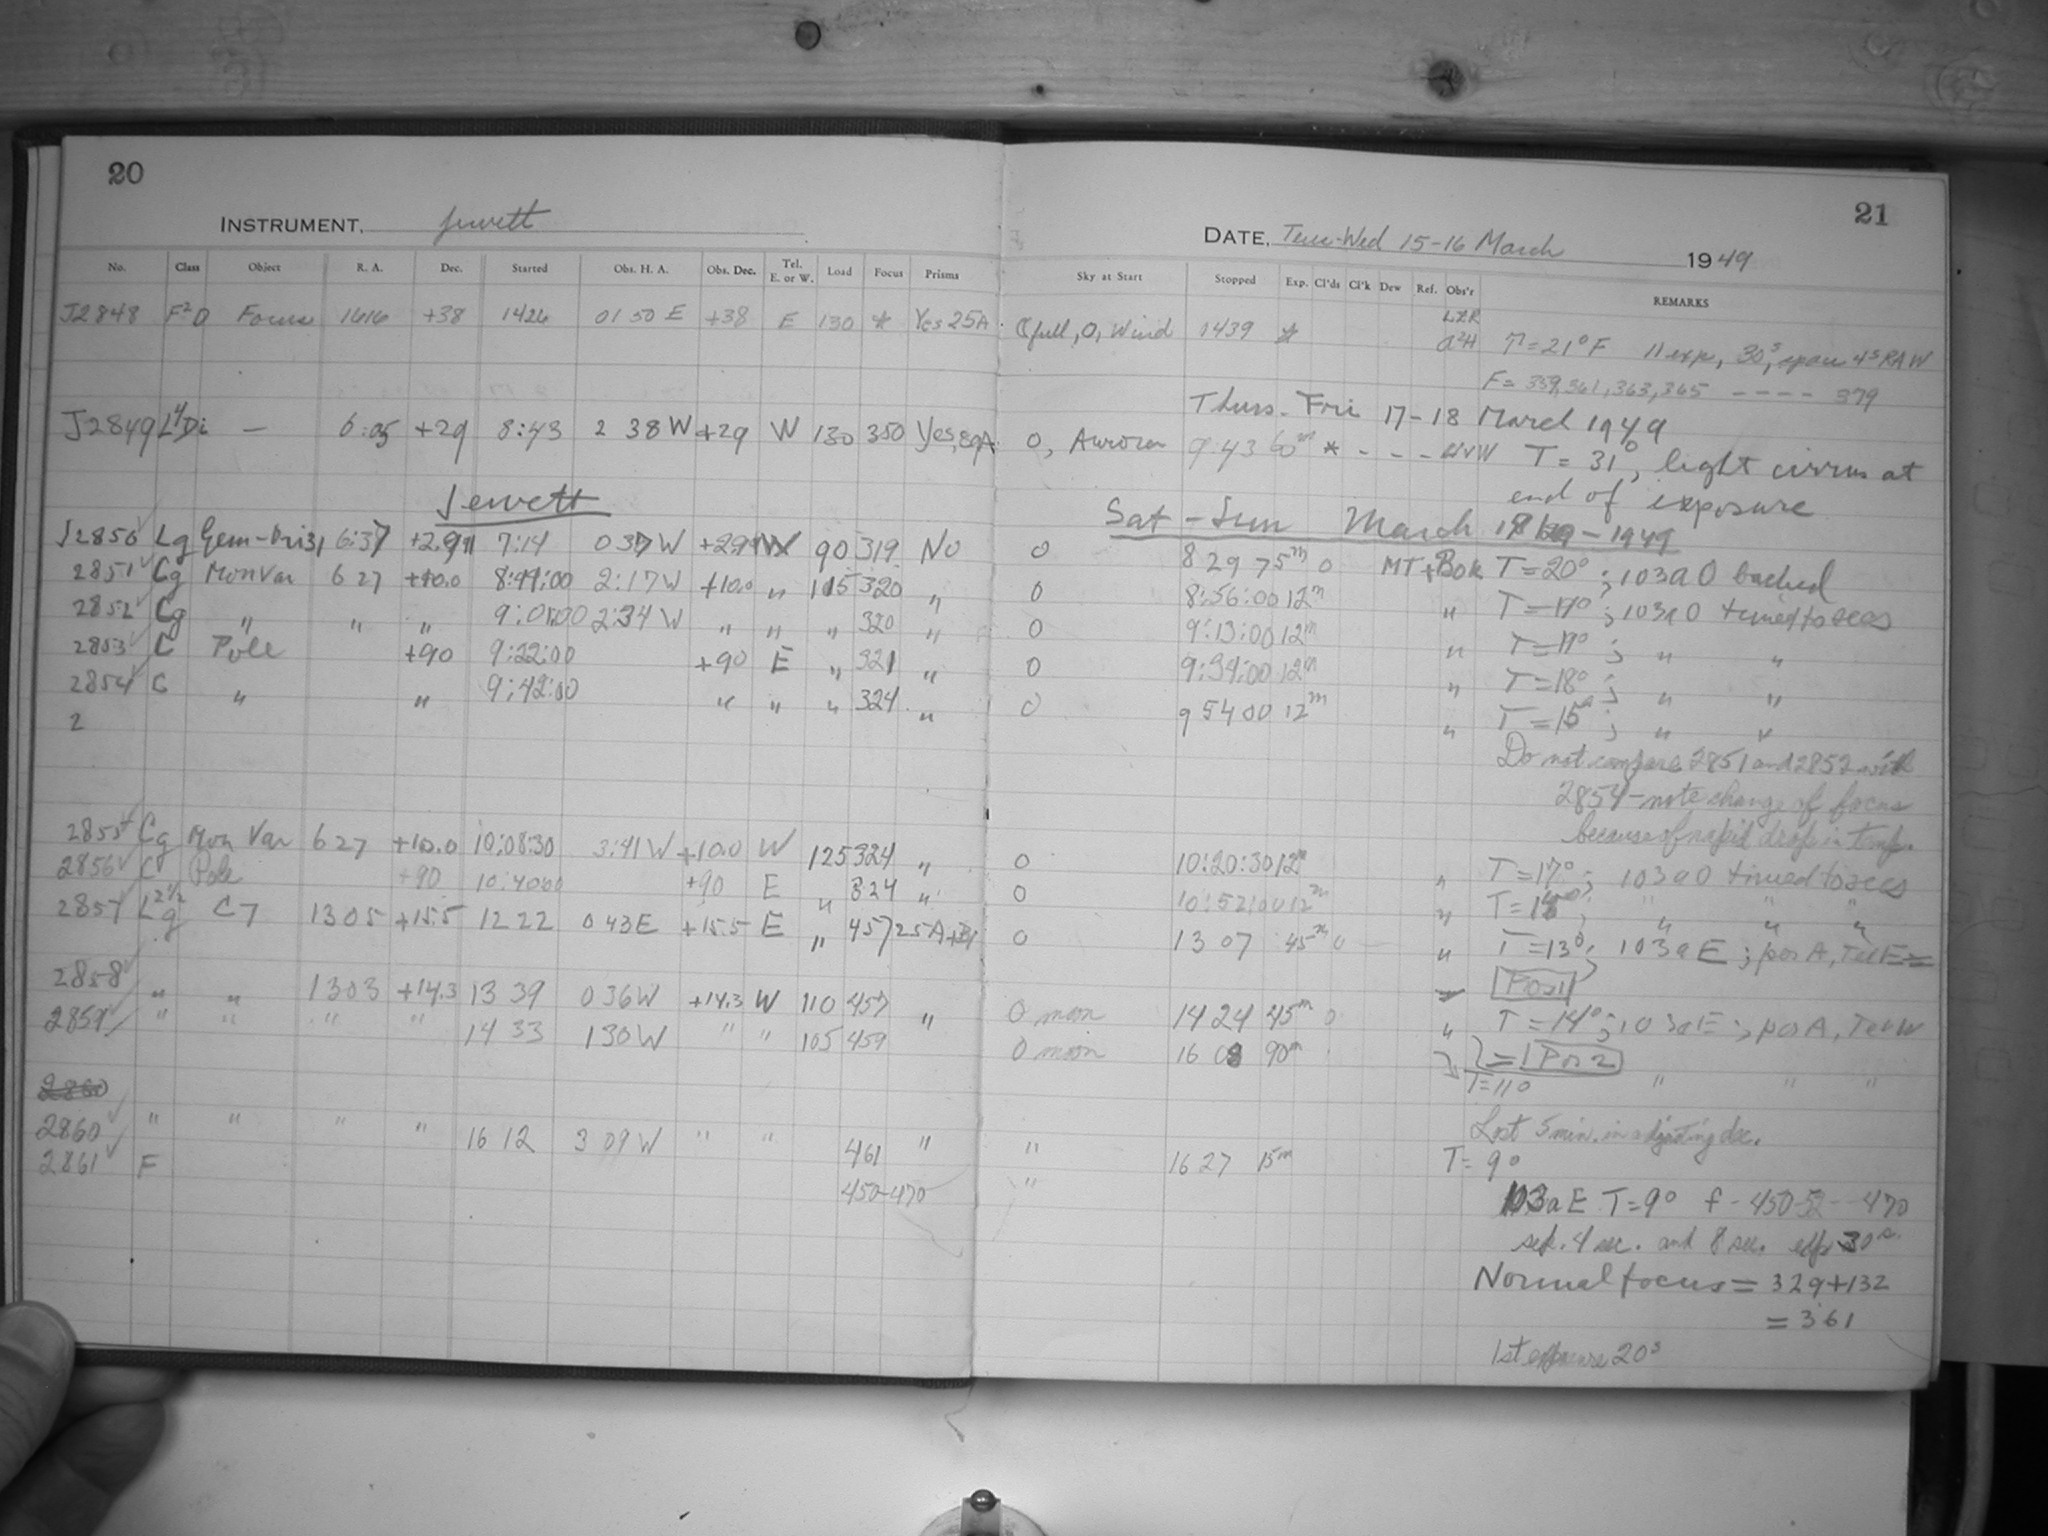 20
INSTRUMENT, Jewett
No. Class Object R. A. Dec. Started Obs. H. A. Obs. Dec. Tel. E. or W. Load Focus Prisms
J2848 F²D Focus 1616 +38 1426 01 50 E +38 E 130 * Yes 25A
J2849 L⁴Di — 6:05 +29 8:43 2 38 W +29 W 130 350 Yes,
Jewett
J2850 Lg Gem-Ori31 6:37 7:14 W 90 319 No
2851 Cg Mon Var 6 27 +10.0 8:44:00 2:17 W +10.0 " 115 320 "
2852 Cg " " " 9:01:00 2:34 W " " " 320 "
2853 C Pole +90 9:22:00 +90 E " 321 "
2854 C " " 9:42:00 " " " 324 "
2
2855 Cg Mon Var 6 27 +10.0 10:08:30 3:41 W +10.0 W 125 324 "
2856 C Pole +90 10:40:00 +90 E " 324 "
2857 L2½g C7 13 05 +15.5 12 22 0 43 E +15.5 E " 457 25A
2858 " " 13 03 +14.3 13 39 0 36 W +14.3 W 110 457 "
2859 " " " " 14 33 1 30 W " " 105 459
2860
2860 " " " " 16 12 3 09 W " " 461 "
2861 F 450-470
21
DATE, Tues-Wed 15-16 March 1949
Sky at Start Stopped Exp. Cl'ds Cl'k Dew Ref. Obs'r REMARKS
full, 0, Wind 1439 * T=21°F 11 exp, 30ˢ, space 4ˢ RA W
F = 359, 361, 363, 365 ---- 379
Thurs - Fri 17-18 March 1949
0, Aurora 9 43 60ᵐ * - - - T = 31°, light cirrus at
end of exposure
Sat - Sun March - 1949
0 8 29 75ᵐ 0 MT + Bok T=20° ; 103a0 backed
0 8:56:00 12ᵐ " T=17° ; 103a0 timed to secs
0 9:13:00 12ᵐ " T=17° ; " "
0 9:34:00 12ᵐ " T=18° ; " "
0 9 54 00 12ᵐ " T=15° ; " "
Do not compare 2851 and 2852 with
2854 - note change of focus
because of rapid drop in temp.
0 10:20:30 12ᵐ " T=17° ; 103a0 timed to secs
0 10:52:00 12ᵐ " " " "
0 13 07 45ᵐ 0 " T=13° ; 103aE ; pos A, Tel E =
Pos 1
0 moon 14 24 45ᵐ 0 " T=14° ; 103aE ; pos A, Tel W
= Pos 2
0 moon 16 08 90ᵐ T=11° " " "
Lost 5 min. in adjusting dec.
" 16 27 15ᵐ T= 9°
" 103a E T=9° f - 450-52 -- 470
sep. 4 sec. and 8 sec. exp 30ˢ.
Normal focus = 329+132
= 361
1st exposure 20ˢ